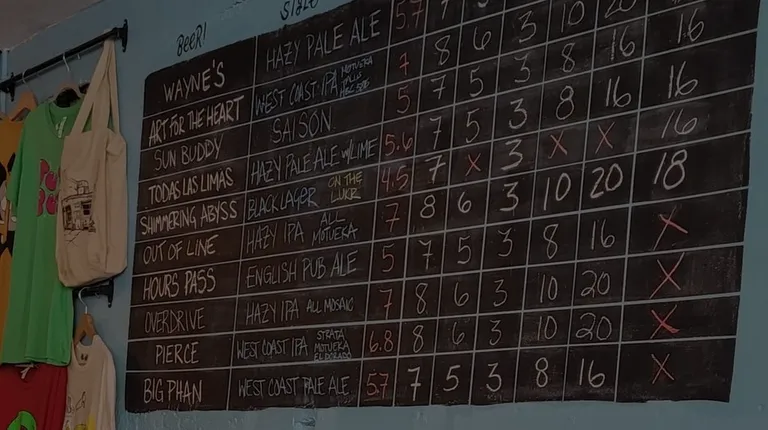 BEER! STYLE
WAYNE'S HAZY PALE ALE 5.7 7
ART FOR THE HEART WEST COAST IPA MOTUEKA 7 8 6 3 10 20
SUN BUDDY SAISON 5 7 5 3 8 16 16
TODAS LAS LIMAS HAZY PALE ALE W/LIME 5.6 7 5 3 8 16 16
SHIMMERING ABYSS BLACK LAGER ON THE LUKR 4.5 7 X 3 X X 16
OUT OF LINE HAZY IPA ALL MOTUEKA 7 8 6 3 10 20 18
HOURS PASS ENGLISH PUB ALE 5 7 5 3 8 16 X
OVERDRIVE HAZY IPA ALL MOSAIC 7 8 6 3 10 20 X
PIERCE WEST COAST IPA STRATA MOTUEKA EL DORADO 6.8 8 6 3 10 20 X
BIG PHAN WEST COAST PALE ALE 5.7 7 5 3 8 16 X